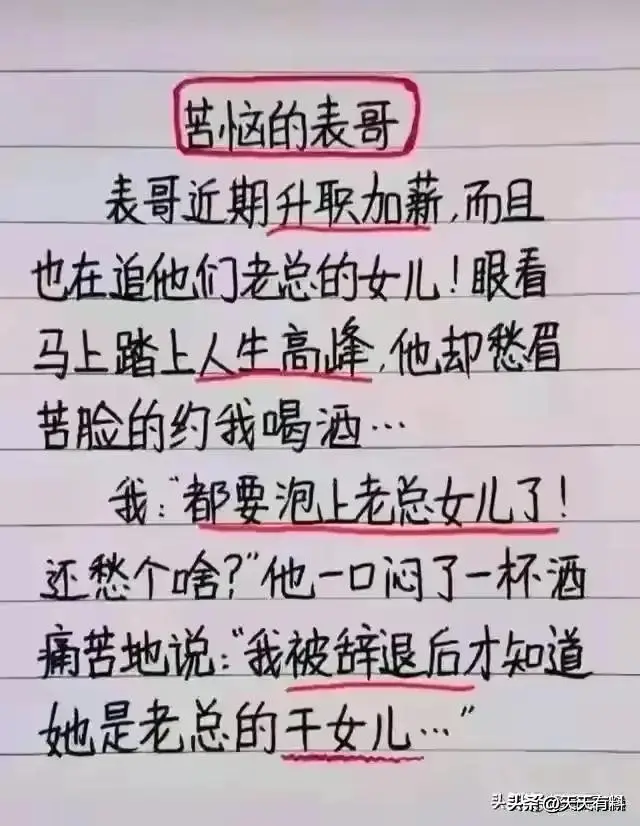 苦恼的表哥
表哥近期升职加薪,而且
也在追他们老总的女儿!眼看
马上踏上人生高峰,他却愁眉
苦脸的约我喝酒…
我:"都要泡上老总女儿了!
还愁个啥?"他一口闷了一杯酒
痛苦地说:"我被辞退后才知道
她是老总的干女儿…"
头条@天天有料